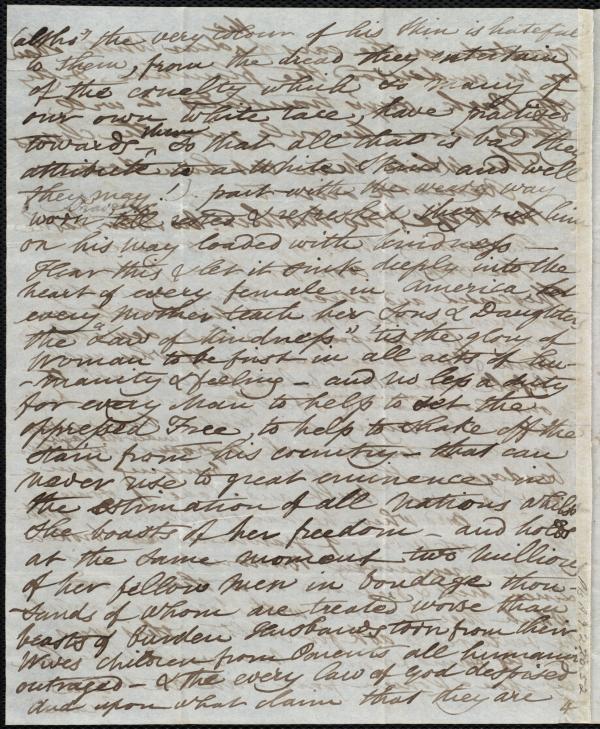 (altho' the very colour of his skin is hateful
to them, from the dread they entertain
of the cruelty which so many of
our own White race, have practised
towards them so that all that is bad they
attribute to a White Skin and well
they may!) part with the weary way
worn till rested & refreshed they put him
on his way loaded with kindness –
Hear this & let it sink deeply into the
heart of every female in America,
every Mother teach her Sons & Daughters
the "Law of kindness" 'tis the glory of
Woman to be first in all acts of hu-
-manity & feeling – and no less a duty
for every Man to help to set the
oppressed Free, to help to shake off the
stain from his country – that can
never rise to great eminence in
the estimation of all Nations whilst
she boasts of her freedom – and holds
at the same moment two Millions
of her fellow men in bondage thou-
-sands of whom are treated worse than
beasts of burden Husbands torn from their
Wives children from Parents all humanity
outraged – & the every law of God despised
and upon what claim that they are